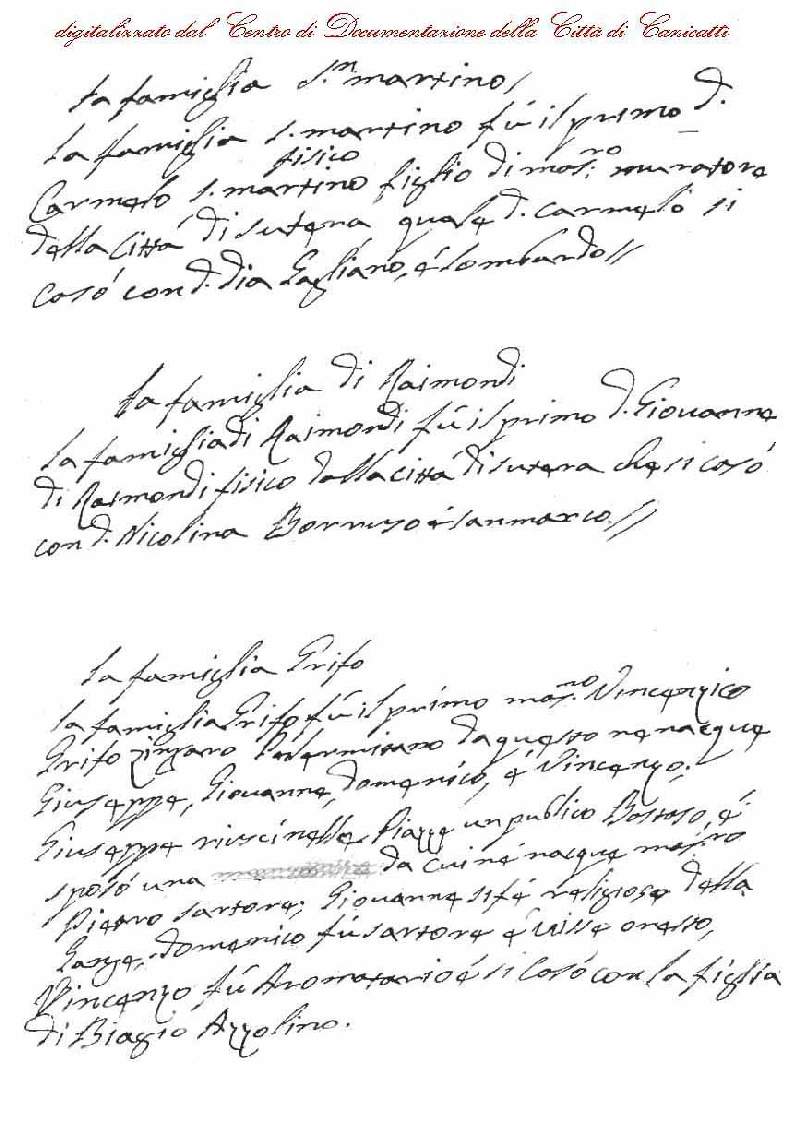 digitalizzato dal Centro di Documentazione della Città di Canicattì
la famiglia S.n martino/
la famiglia s. martino fù il primo d.
Carmelo s. martino fisico figlio di mas:ro muratore
della Città di sutera quale d. carmelo si
casò con d. dia Gagliano, é lombardo//
la famiglia di Raimondi
la famiglia di Raimondi fù il primo d. Giouanne
di Raimondi fisico dalla città di sutera che si casò
con d. Nicolina Borruso é sanmarco //
la famiglia Grifo
la famiglia Grifo fù il primo mas:ro Vincenzico
Grifo zingaro Palermitano da questo ne nacque
Giuseppe, Giouanne, domenico, é Vincenzo;
Giuseppe riuscì nelle Piazze un publico Bastaso, é
sposò una da cui né nacque mas:ro
Pietro sartore; Giouanne si fé religioso della
domenico fù sartore é uisse onesto,
Vincenzo fù Aromatario é si casò con la figlia
di Biagio Azzolino.